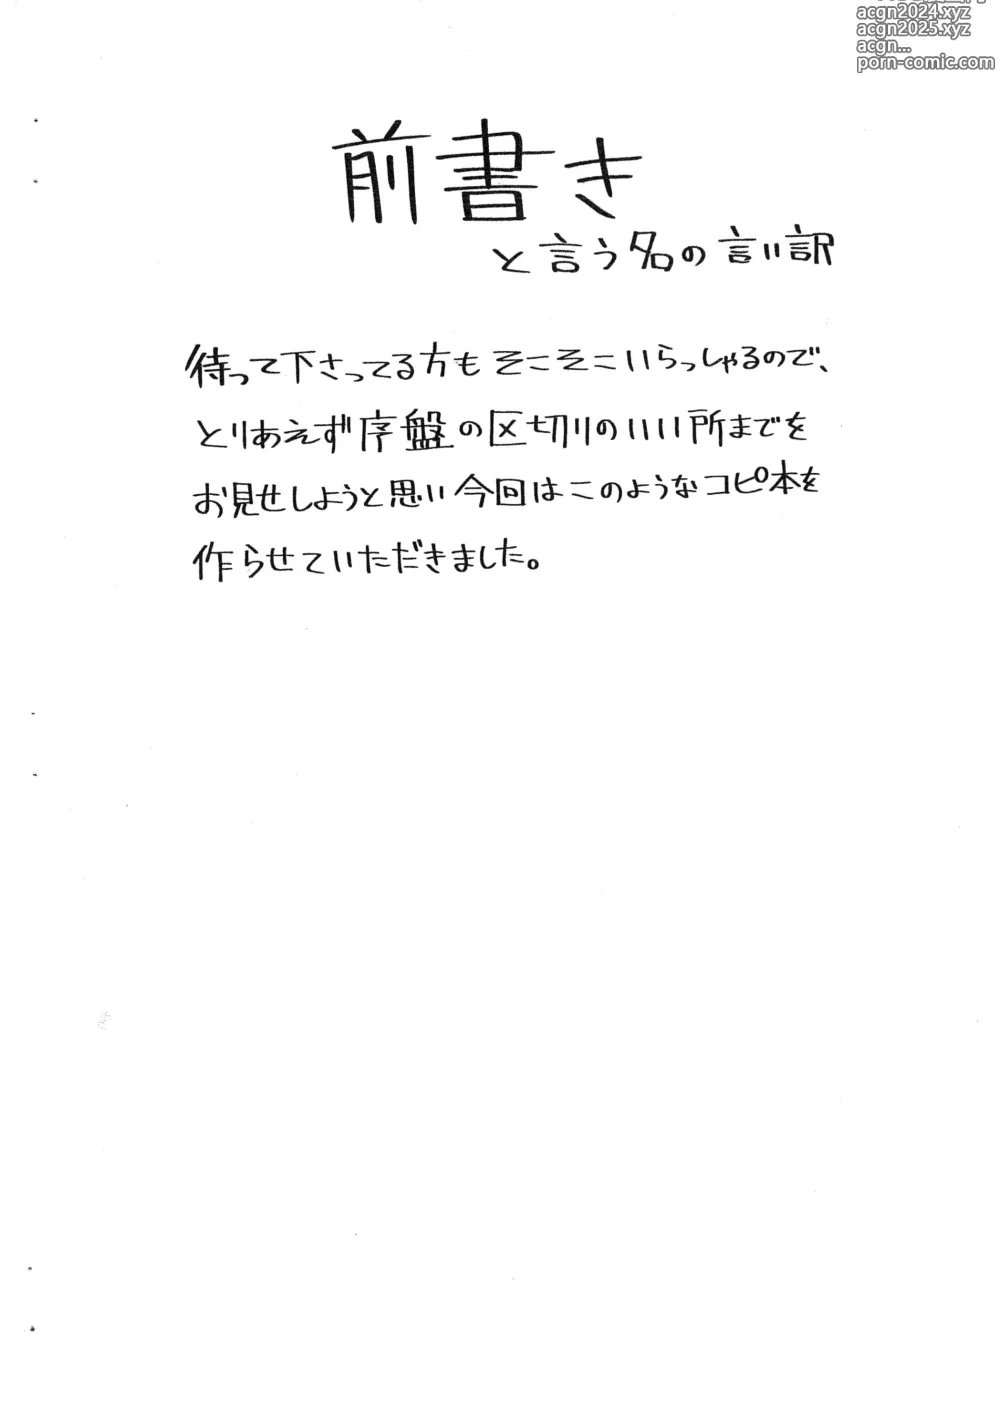 acgn2024.xyz
acgn2025.xyz
acgn...
porn-comic.com
前書き
と言う名の言い訳
待って下さってる方もそこそこいらっしゃるので、
とりあえず序盤の区切りのいい所までを
お見せしようと思い今回はこのようなコピ本を
作らせていただきました。